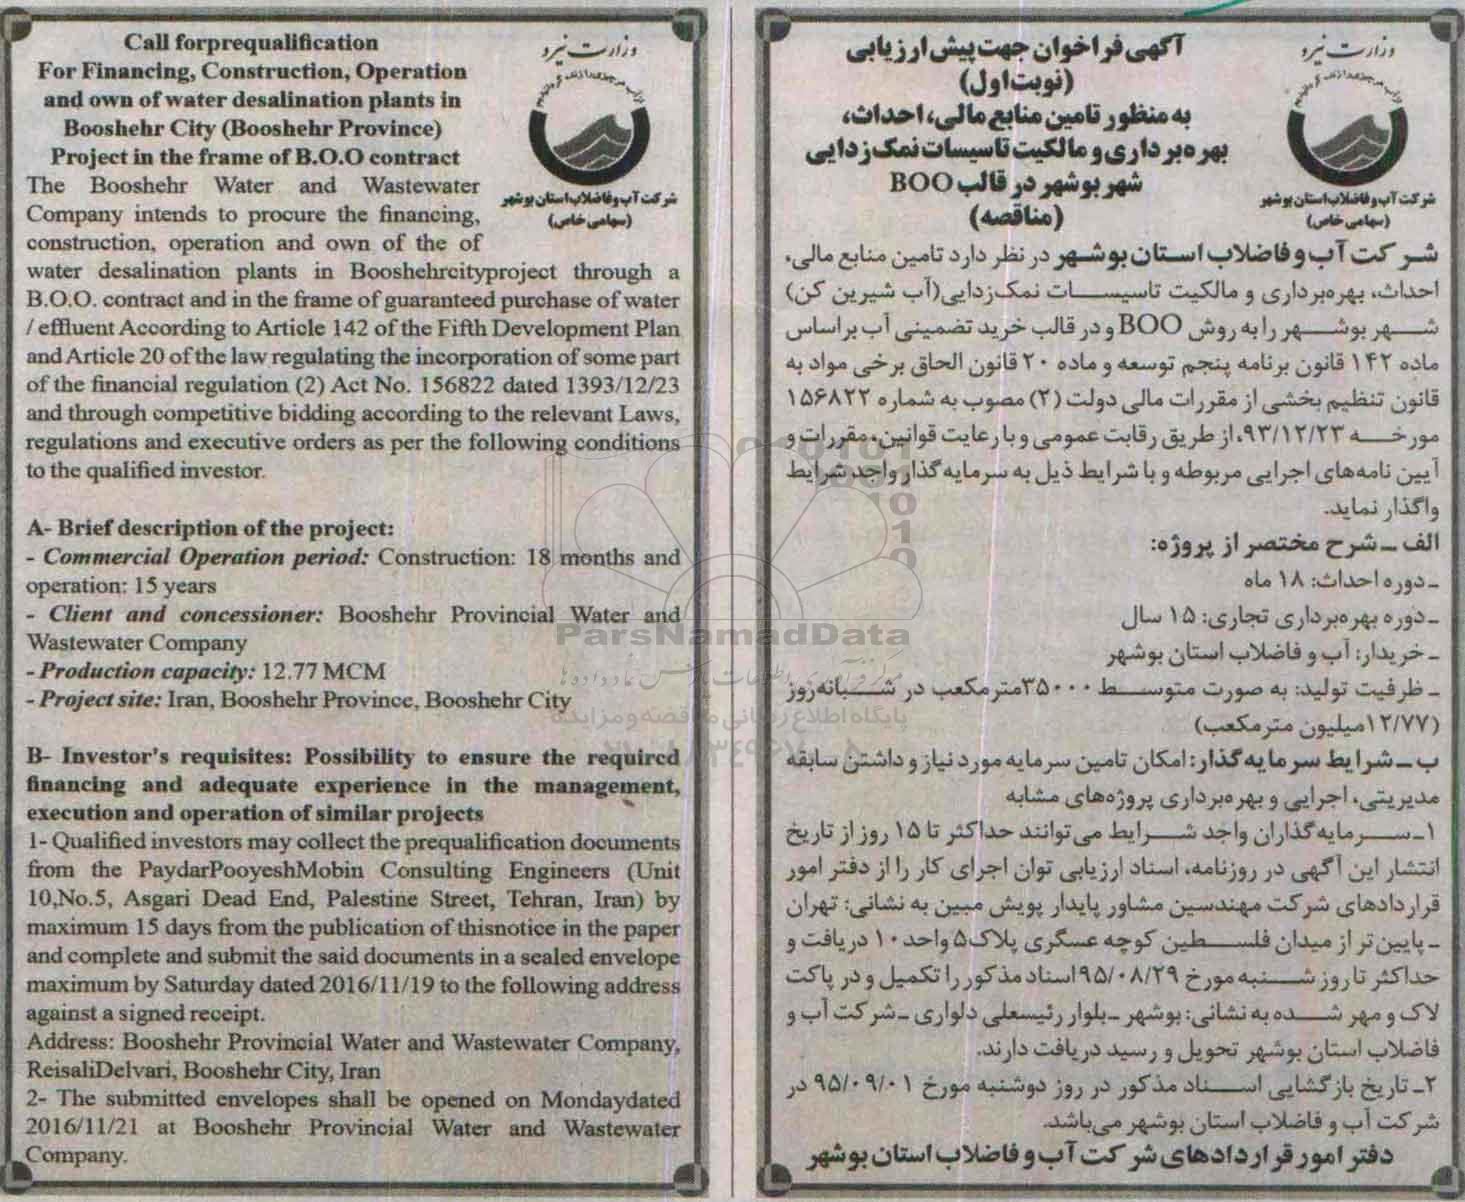 Call forprequalification
For Financing, Construction, Operation
and own of water desalination plants in
Booshehr City (Booshehr Province)
Project in the frame of B.O.O contract
وزارت نیرو
شرکت آب و فاضلاب استان بوشهر
(سهامی خاص)
The Booshehr Water and Wastewater
Company intends to procure the financing,
construction, operation and own of the of
water desalination plants in Booshehrcityproject through a
B.O.O. contract and in the frame of guaranteed purchase of water
/ effluent According to Article 142 of the Fifth Development Plan
and Article 20 of the law regulating the incorporation of some part
of the financial regulation (2) Act No. 156822 dated 1393/12/23
and through competitive bidding according to the relevant Laws,
regulations and executive orders as per the following conditions
to the qualified investor.
A- Brief description of the project:
- Commercial Operation period: Construction: 18 months and
operation: 15 years
- Client and concessioner: Booshehr Provincial Water and
Wastewater Company
- Production capacity: 12.77 MCM
- Project site: Iran, Booshehr Province, Booshehr City
B- Investor's requisites: Possibility to ensure the required
financing and adequate experience in the management,
execution and operation of similar projects
1- Qualified investors may collect the prequalification documents
from the PaydarPooyeshMobin Consulting Engineers (Unit
10,No.5, Asgari Dead End, Palestine Street, Tehran, Iran) by
maximum 15 days from the publication of thisnotice in the paper
and complete and submit the said documents in a sealed envelope
maximum by Saturday dated 2016/11/19 to the following address
against a signed receipt.
Address: Booshehr Provincial Water and Wastewater Company,
ReisaliDelvari, Booshehr City, Iran
2- The submitted envelopes shall be opened on Mondaydated
2016/11/21 at Booshehr Provincial Water and Wastewater
Company.
آگهی فراخوان جهت پیش ارزیابی
(نوبت اول)
به منظور تامین منابع مالی، احداث،
بهره‌برداری و مالکیت تاسیسات نمک زدایی
شهر بوشهر در قالب BOO
(مناقصه)
وزارت نیرو
شرکت آب و فاضلاب استان بوشهر
(سهامی خاص)
شرکت آب و فاضلاب استان بوشهر در نظر دارد تامین منابع مالی،
احداث، بهره‌برداری و مالکیت تاسیسات نمک‌زدایی(آب شیرین کن)
شهر بوشهر را به روش BOO و در قالب خرید تضمینی آب براساس
ماده ۱۴۲ قانون برنامه پنجم توسعه و ماده ۲۰ قانون الحاق برخی مواد به
قانون تنظیم بخشی از مقررات مالی دولت (۲) مصوب به شماره ۱۵۶۸۲۲
مورخه ۹۳/۱۲/۲۳، از طریق رقابت عمومی و با رعایت قوانین، مقررات و
آیین نامه‌های اجرایی مربوطه و با شرایط ذیل به سرمایه گذار واجد شرایط
واگذار نماید.
الف ـ شرح مختصر از پروژه:
ـ دوره احداث: ۱۸ ماه
ـ دوره بهره‌برداری تجاری: ۱۵ سال
ـ خریدار: آب و فاضلاب استان بوشهر
ـ ظرفیت تولید: به صورت متوسط ۳۵۰۰۰مترمکعب در شبانه‌روز
(۱۲/۷۷میلیون مترمکعب)
ب ـ شرایط سرمایه گذار: امکان تامین سرمایه مورد نیاز و داشتن سابقه
مدیریتی، اجرایی و بهره‌برداری پروژه‌های مشابه
۱ـ سرمایه گذاران واجد شرایط می‌توانند حداکثر تا ۱۵ روز از تاریخ
انتشار این آگهی در روزنامه، اسناد ارزیابی توان اجرای کار را از دفتر امور
قراردادهای شرکت مهندسین مشاور پایدار پویش مبین به نشانی: تهران
ـ پایین تر از میدان فلسطین کوچه عسگری پلاک۵ واحد۱۰ دریافت و
حداکثر تا روز شنبه مورخ ۹۵/۰۸/۲۹اسناد مذکور را تکمیل و در پاکت
لاک و مهر شده به نشانی: بوشهر ـ بلوار رئیسعلی دلواری ـ شرکت آب و
فاضلاب استان بوشهر تحویل و رسید دریافت دارند.
۲ـ تاریخ بازگشایی اسناد مذکور در روز دوشنبه مورخ ۹۵/۰۹/۰۱ در
شرکت آب و فاضلاب استان بوشهر می‌باشد.
دفتر امور قراردادهای شرکت آب و فاضلاب استان بوشهر
ParsNamadData
پایگاه اطلاع رسانی مناقصه و مزایده